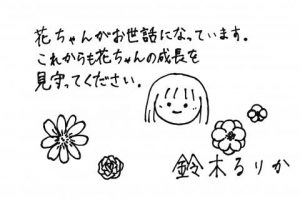 花ちゃんがお世話になっています。
これからも花ちゃんの成長を
見守ってください。
鈴木るりか